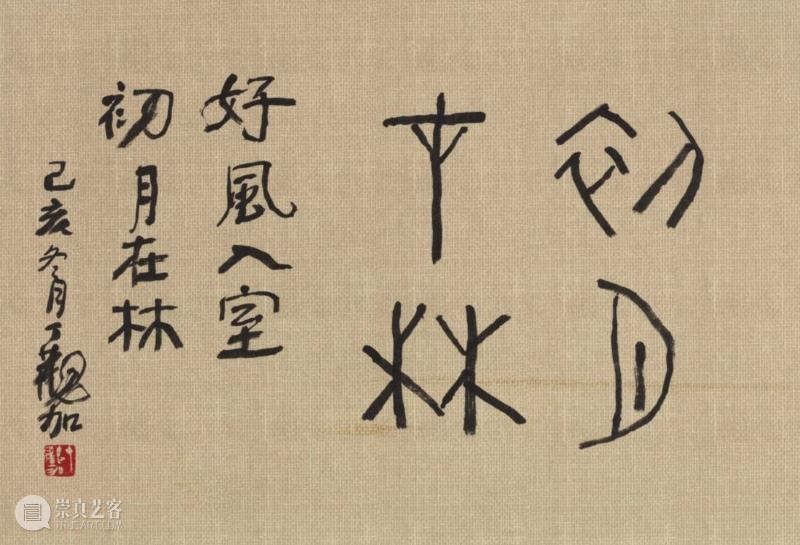 初月
才林
好風入室
初月在林
己亥冬月丁觀加
崇真艺客
TRUEART.COM